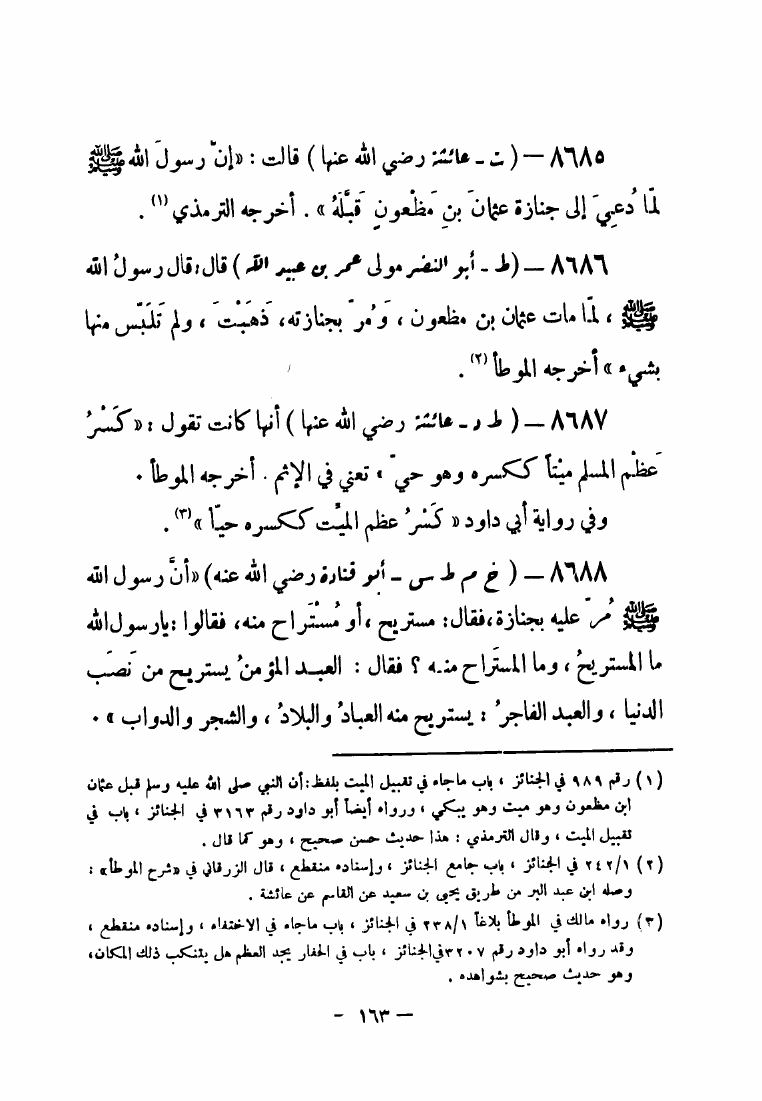 ٨٦٨٥ — ( ت - عائشة رضي الله عنها ) قالت : « إنَّ رسولَ الله ﷺ
لمّا دُعِيَ إلى جنازة عثمانَ بنِ مَظْعونٍ قَبَّلَهُ » . أخرجه الترمذي (١) .
٨٦٨٦ — ( ط - أبو النضر مولى عمر بن عبيد الله ) قال : قال رسولُ الله
ﷺ ، لمّا مات عثمان بن مظعون ، وَمُرّ بجنازته ، ذَهَبْتَ ، ولم تَلَبَّس منها
بشيء » أخرجه الموطأ (٢) .
٨٦٨٧ — ( ط د - عائشة رضي الله عنها ) أنها كانت تقول : « كَسْرُ
عَظْم المسلم ميْتاً ككسره وهو حيّ » تعني في الإثم . أخرجه الموطأ .
وفي رواية أبي داود « كَسْرُ عظم الميِّت ككسره حيّاً » (٣) .
٨٦٨٨ — ( خ م ط س - أبو قتادة رضي الله عنه ) « أنَّ رسول الله
ﷺ مُرّ عليه بجنازة ، فقال : مستريح ، أو مُسْتَراح منه ، فقالوا : يارسول الله
ما المستريحُ ، وما المستَراح منه ؟ فقال : العبد المؤمنُ يستريح من نَصَب
الدنيا ، والعبد الفاجرُ : يستريح منه العبادُ والبلادُ ، والشجر والدواب » .
(١) رقم ٩٨٩ في الجنائز ، باب ماجاء في تقبيل الميت بلفظ : أن النبي صلى الله عليه وسلم قبل عثمان
ابن مظعون وهو ميت وهو يبكي ، ورواه أيضاً أبو داود رقم ٣١٦٣ في الجنائز ، باب في
تقبيل الميت ، وقال الترمذي : هذا حديث حسن صحيح ، وهو كما قال .
(٢) ٢٤٢/١ في الجنائز ، باب جامع الجنائز ، وإسناده منقطع ، قال الزرقاني في « شرح الموطأ » :
وصله ابن عبد البر من طريق يحيى بن سعيد عن القاسم عن عائشة .
(٣) رواه مالك في الموطأ بلاغاً ٢٣٨/١ في الجنائز ، باب ماجاء في الاختفاء ، وإسناده منقطع ،
وقد رواه أبو داود رقم ٣٢٠٧ في الجنائز ، باب في الحفار يجد العظم هل يتنكب ذلك المكان ،
وهو حديث صحيح بشواهده .
— ١٦٣ —